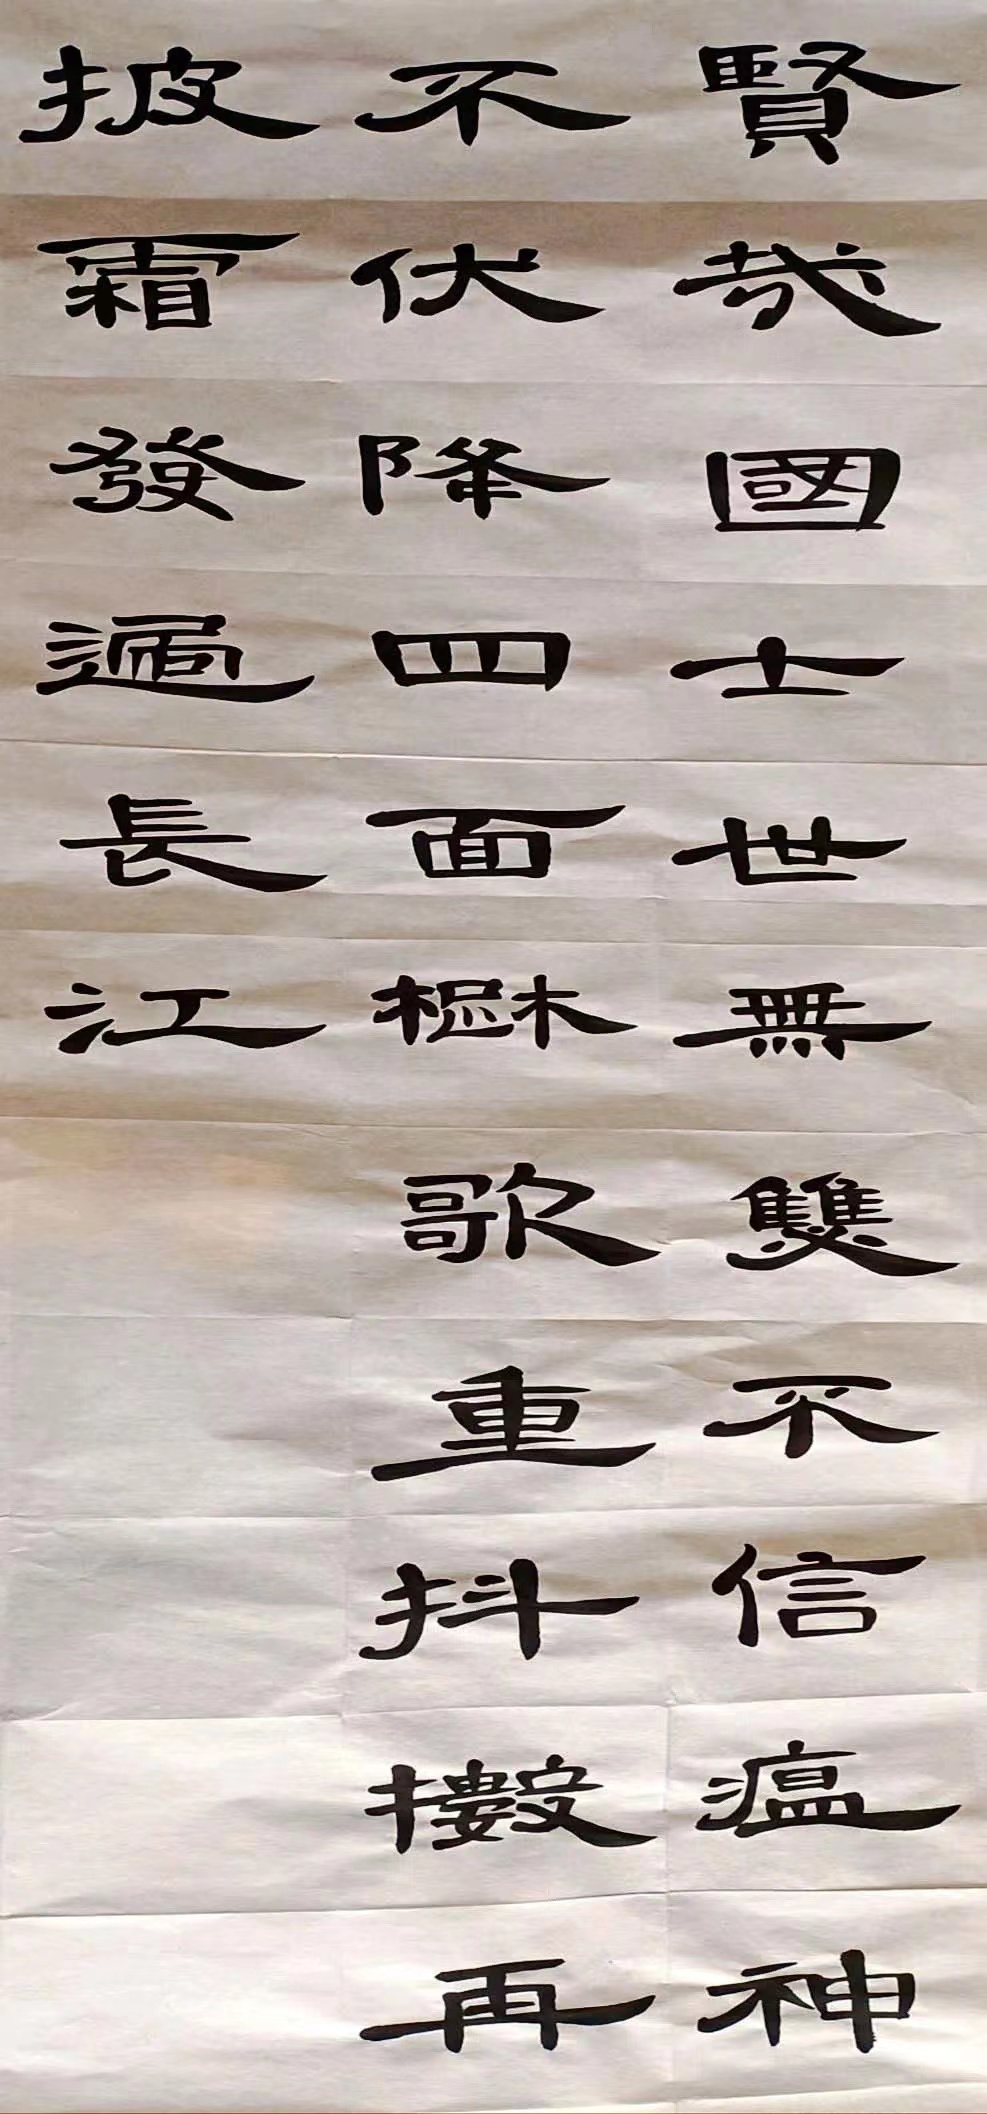 賢哉國士世無雙不信瘟神
不伏降四面楚歌重抖擻再
披霜發過長江